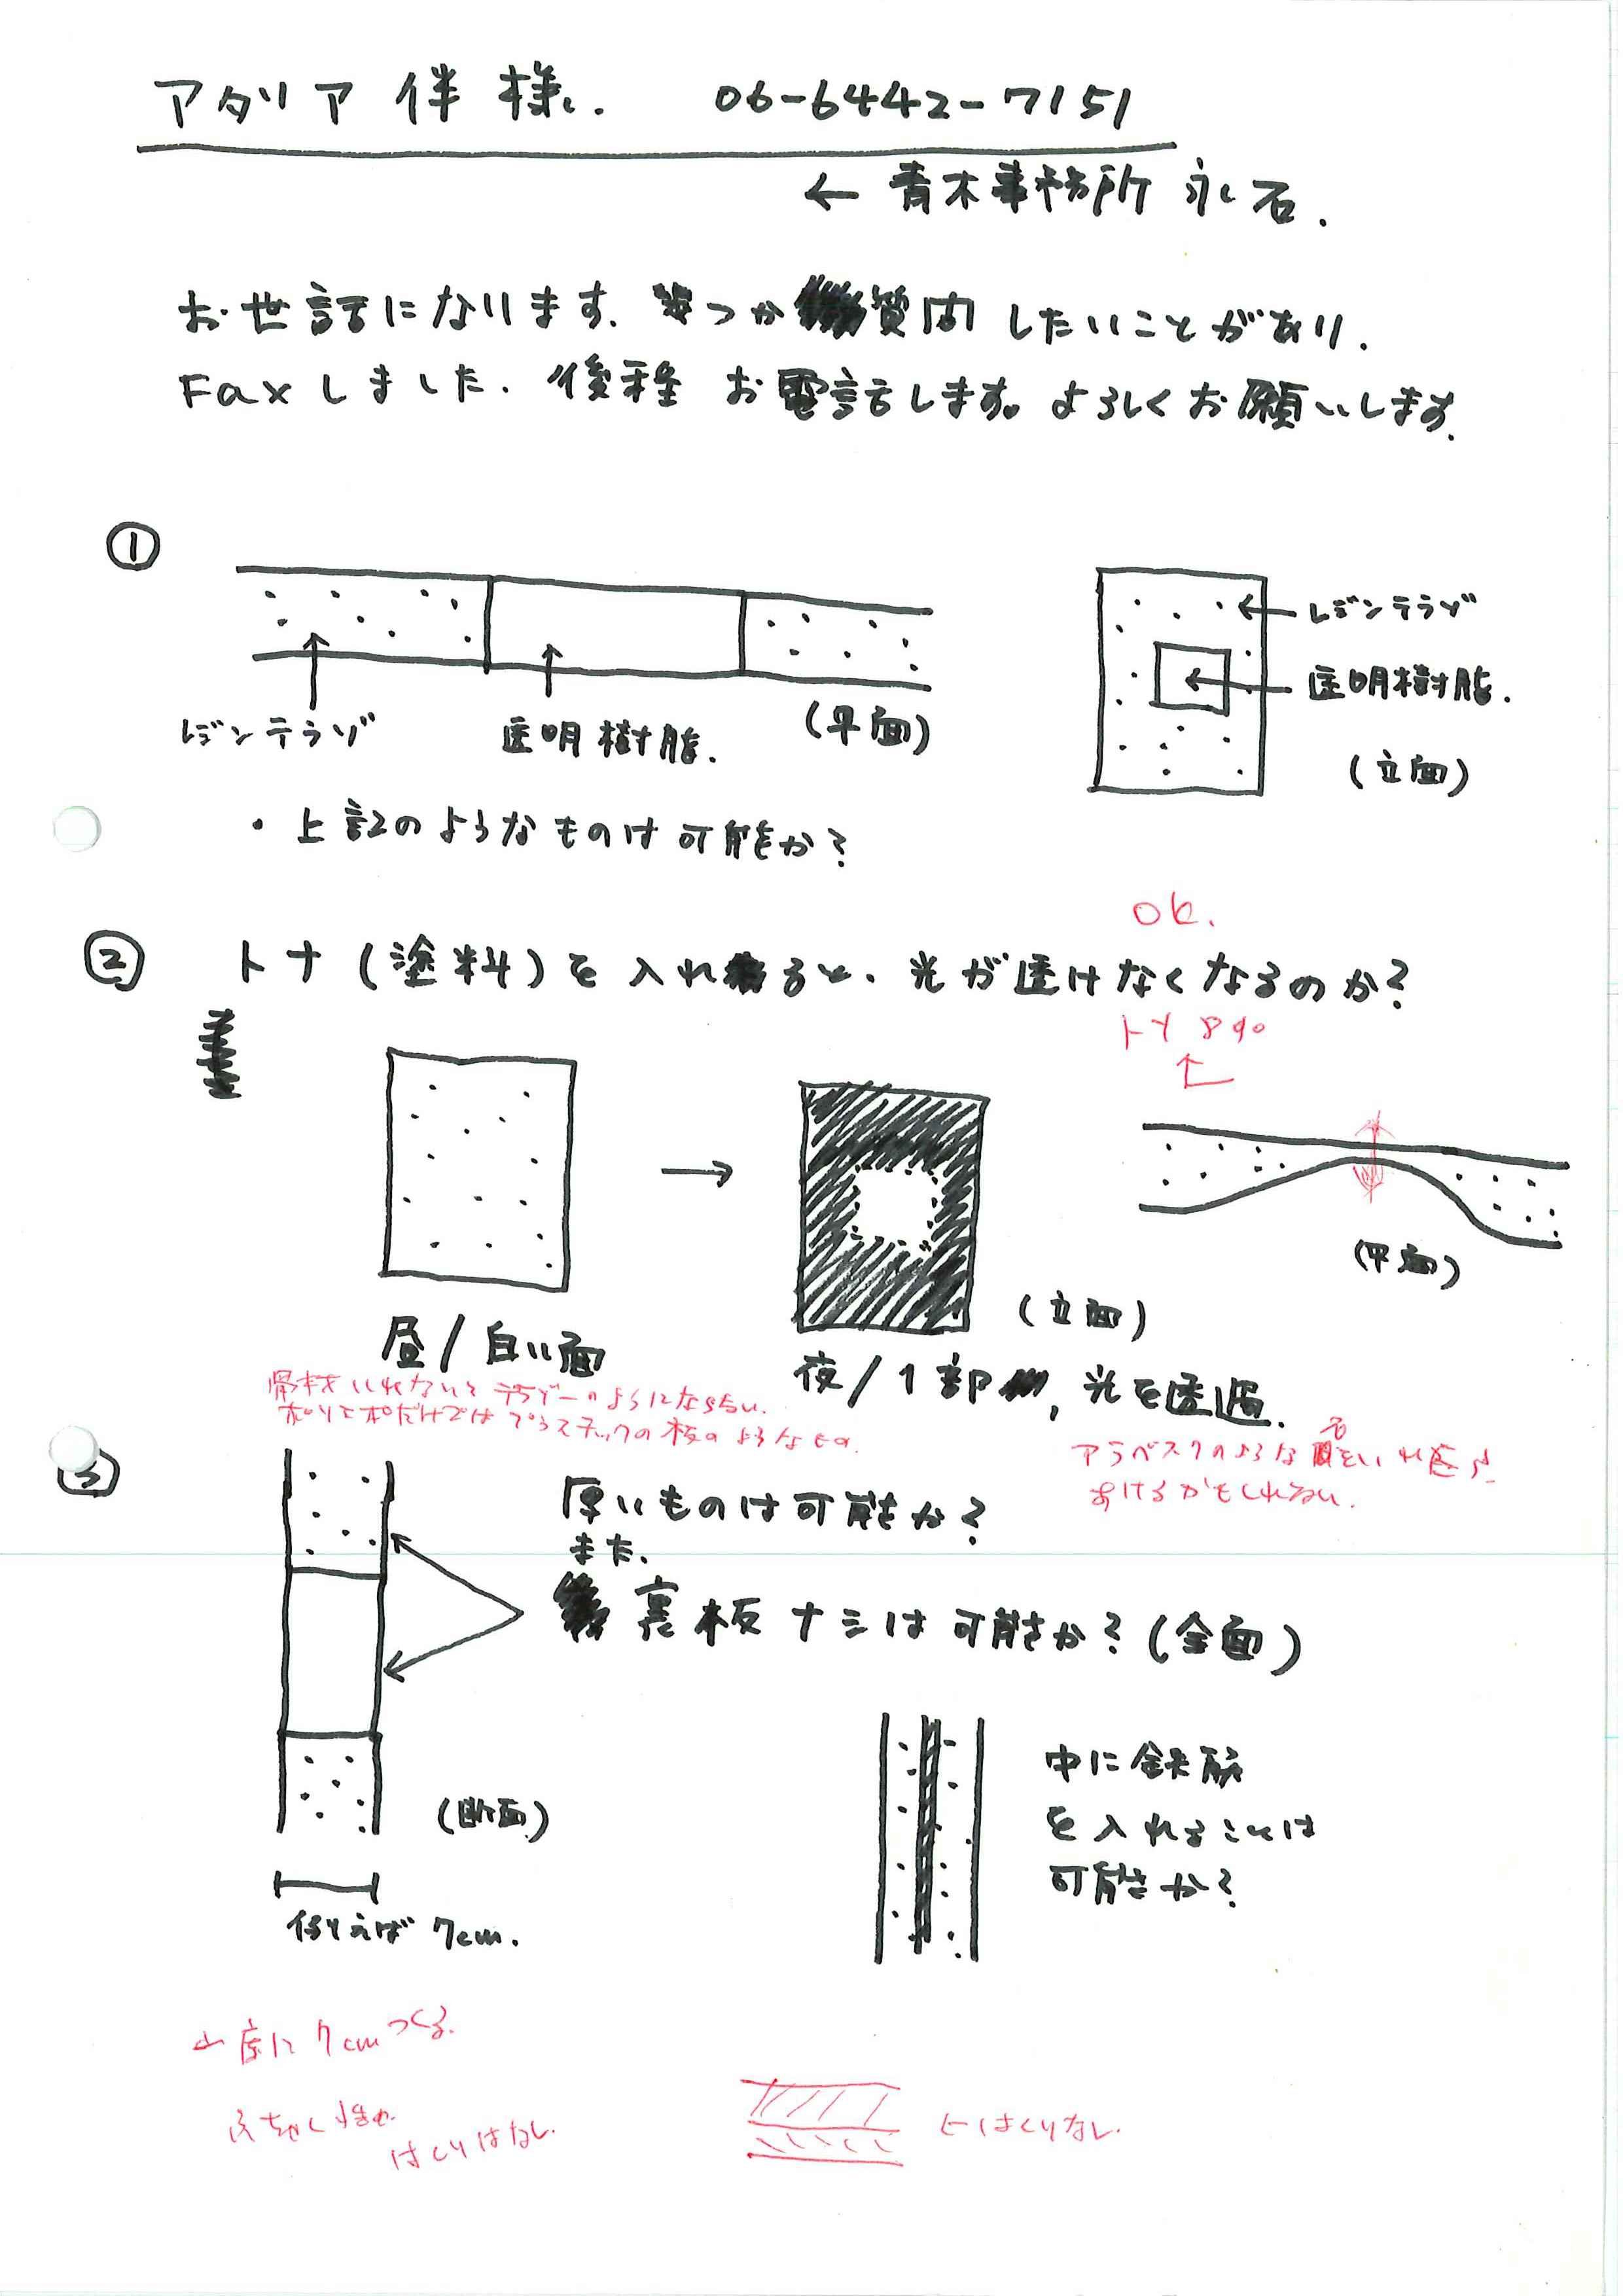 アタリア 伴 様. 06-6442-7151
← 青木事務所 永石.
お世話になります. つか 質問 したいことがあり.
Fax しました. 後程 お電話します。よろしくお願いします.
①
レジンテラゾ
透明樹脂.
(平面)
レジンテラゾ
透明樹脂.
(立面)
・上記のようなものは可能か?
OK.
② トナ (塗料) を入れると. 光が透けなくなるのか?
昼/白い面
夜/1部, 光を透過.
(立面)
(平面)
骨材いれないとテラゾーのようにならない.
だけではプラスチックの板のようなもの.
アラベスクのような
あけるかもしれない.
③
厚いものは可能か?
また.
裏板ナシは可能か? (全面)
(断面)
例えば 7cm.
中に鉄筋
を入れることは
可能か?
7cm つくる.
はくりはない.
はくりなし.